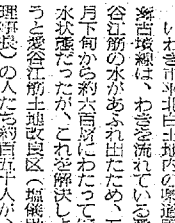 いわき市平北白土地内の農
古墳線は、わきを流れている
谷江筋の水があふれ出たため、
月下旬から約六百㍍にわたって
水状態だったが、これを解決し
うと愛谷江筋土地改良区(塩
理事長)の人たち約百五十人が